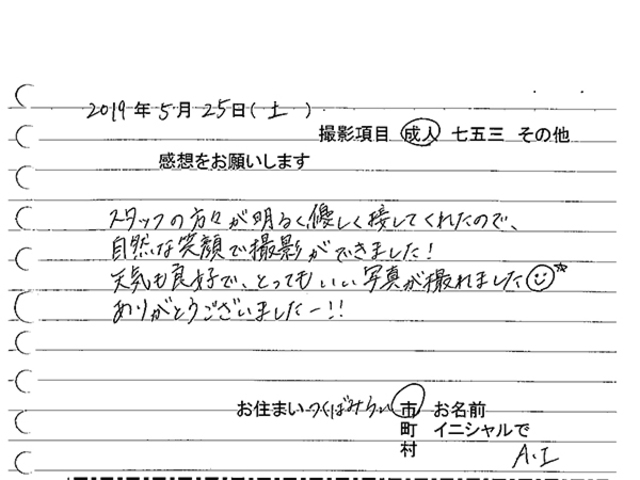 2019年5月25日(土)
撮影項目 成人 七五三 その他
感想をお願いします
スタッフの方々が明るく優しく接してくれたので、
自然な笑顔で撮影ができました!
天気も良好で、とってもいい写真が撮れました
ありがとうございましたー!!
お住まい つくばみらい 市 お名前
町 イニシャルで
村 A.I